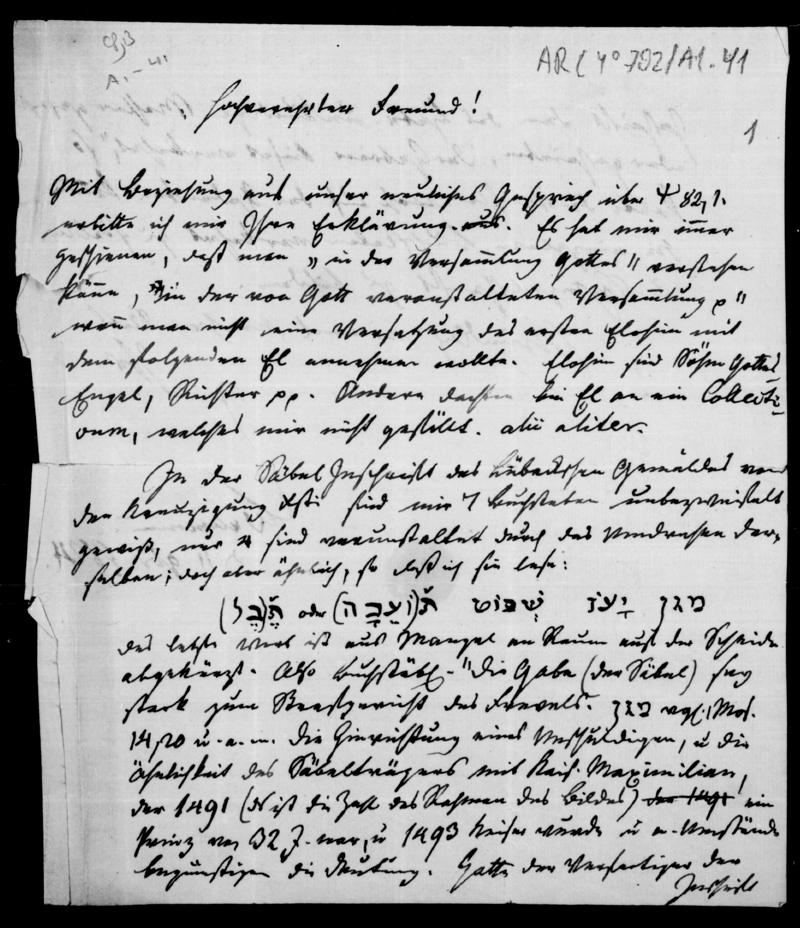 A. - 41
AR (4° 792/A1. 41
1
Hochverehrter Freund!
Mit Beziehung auf unser neuliches Gespräch über ψ 82,1.
erbitte ich mir Ihre Erklärung. Es hat mir immer
geschienen, daß man „in der Versammlung Gottes" verstehen
könne, „in der von Gott veranstalteten Versammlung p"
wenn man nicht eine Versetzung des ersten Elohim mit
dem folgenden El annehmen wollte. Elohim sind Söhne Gottes
Engel, Richter pp. Andere dachten bei El an ein Collecti-
vum, welches mir nicht gefällt. alii aliter.
In der Säbel Inschrift des Lübeckschen Gemäldes von
der Kreuzigung Xsti sind mir 7 Buchstaben unbezweifelt
gewiß, nur 4 sind verunstaltet durch das Umdrehen der-
selben; doch aber ähnlich, so daß ich sie lese:
מגן יָעֹז שְׁפוֹט תּ(וֹעֵבָה) oder תֶּ(בֶל)
das letzte Wort ist aus Mangel an Raum auf der Scheide
abgekürzt. Also buchstäbl. "Die Gabe (der Säbel) sey
stark zum Strafgericht des Frevels. מגן vgl. 1 Mos.
14,20 u. a. m. Die Hinrichtung eines Unschuldigen, u die
Ähnlichkeit des Säbelträgers mit Kais. Maximilian,
der 1491 (das ist die Zahl des Rahmen des Bildes) der 1491 ein
Prinz von 32 J. war, u 1493 Kaiser wurde u a. Umstände
begünstigen die Deutung. Hatte der Verfertiger der
Inschrift